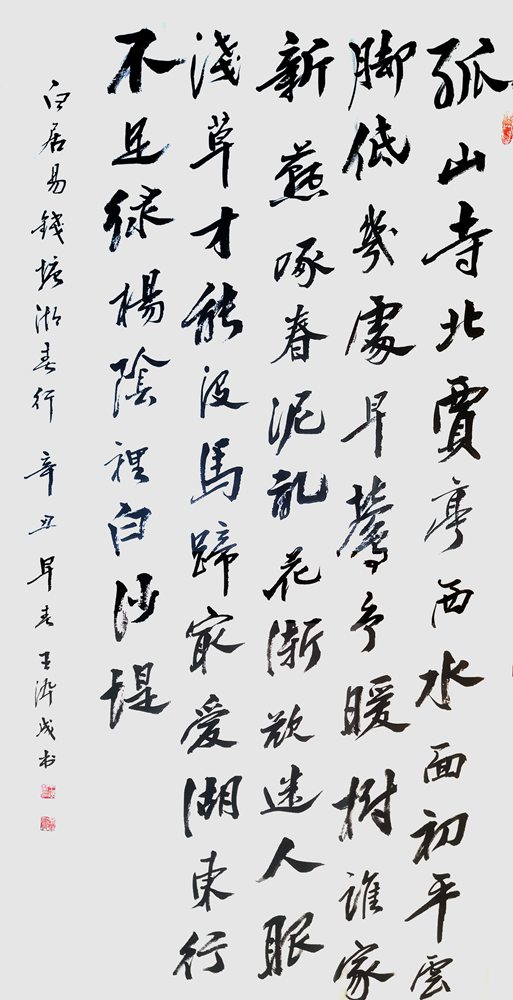 孤山寺北賈亭西水面初平雲
脚低幾處早鶯争暖樹誰家
新燕啄春泥亂花漸欲迷人眼
淺草才能没馬蹄最愛湖東行
不足緑楊陰裡白沙堤
白居易錢塘湖春行 辛丑早春王成书